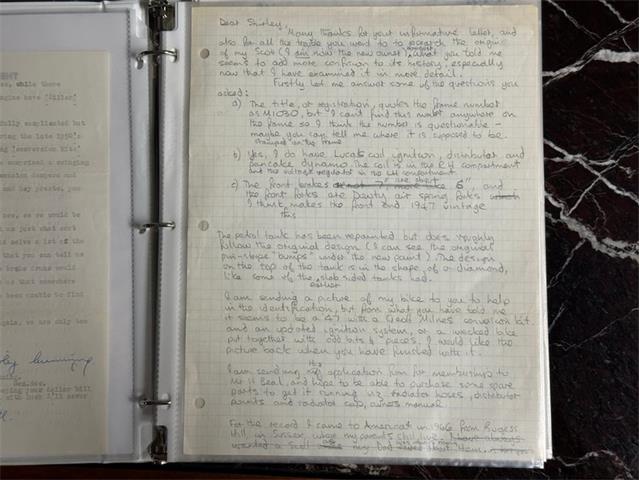 ENT
es, while there
engine have 'Siller'
fully complicated but
ring the late 1950's
ng 'conversion kits'
e comprised a swinging
ension dampers and
and hey presto, you
ee, so we would be
us just what sort
ld solve a lot of the
that you can tell us
brake drums would
us that somewhere
been unable to find
again, we are only too
Dear Shirley,
Many thanks for your informative letter, and
also for all the trouble you went to to research the origins
of my Scott (I am now the new owner) what you told me
seems to add more confusion to its history, especially
now that I have examined it in more detail.
Firstly let me answer some of the questions you
asked:
a) The title, or registration, quotes the frame number
as M1030, but I can't find this number anywhere on
the frame so I think the number is questionable -
maybe you can tell me where it is supposed to be
stamped on the frame
b) Yes, I do have Lucas coil ignition, distributor and
pancake dynamo. The coil is in the R H compartment
and the voltage regulator in the LH compartment
c) The front brakes are not 7", more like 6", and
the front forks are Dowty air spring forks which
I think makes the front end 1947 vintage
this
The petrol tank has been repainted but does roughly
follow the original design (I can see the original
pin-stripe "bumps" under the new paint). The design
on the top of the tank is in the shape of a diamond,
like some of the slab sided tanks had.
earlier
I am sending a picture of my bike to you to help
in the identification, but from what you have told me
it seems to be a 1947 with a Geoff Milnes conversion kit
and an updated ignition system, or a wrecked bike
put together with odd bits & pieces. I would like the
picture back when you have finished with it.
I am sending my application form for membership to
Mr H Beal, and hope to be able to purchase some spare
parts to get it running viz radiator hoses, distributor
points and radiator cap, owners manual
For the record I came to America in 1966 from Burgess
Hill, in Sussex, where my parents still live. I have always
wanted a Scott as my Dad